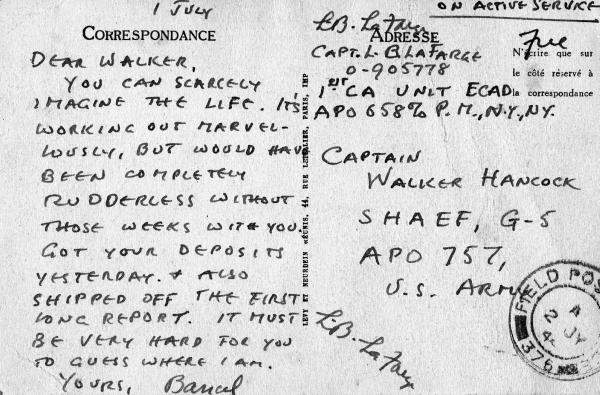 1 JULY
CORRESPONDANCE
DEAR WALKER,
YOU CAN SCARCELY
IMAGINE THE LIFE. IT'S
WORKING OUT MARVEL-
LOUSLY, BUT WOULD HAVE
BEEN COMPLETELY
RUDDERLESS WITHOUT
THOSE WEEKS WITH YOU.
GOT YOUR DEPOSITS
YESTERDAY. & ALSO
SHIPPED OFF THE FIRST
LONG REPORT. IT MUST
BE VERY HARD FOR YOU
TO GUESS WHERE I AM.
YOURS, Bancel
LEVY ET NEURDEIN RÉUNIS, 44, RUE LETELLIER, PARIS, IMP
ON ACTIVE SERVICE
L.B. LaFarge
ADRESSE
Free
CAPT. L B LAFARGE
O-905778
1ST CA UNIT ECAD
APO 658 % P.M., N.Y., N.Y.
N'écrire que sur
le côté réservé à
la correspondance
CAPTAIN
WALKER HANCOCK
SHAEF, G-5
APO 757,
U.S. ARMY
L.B. LaFarge
FIELD POS
A
2 JY
4
376